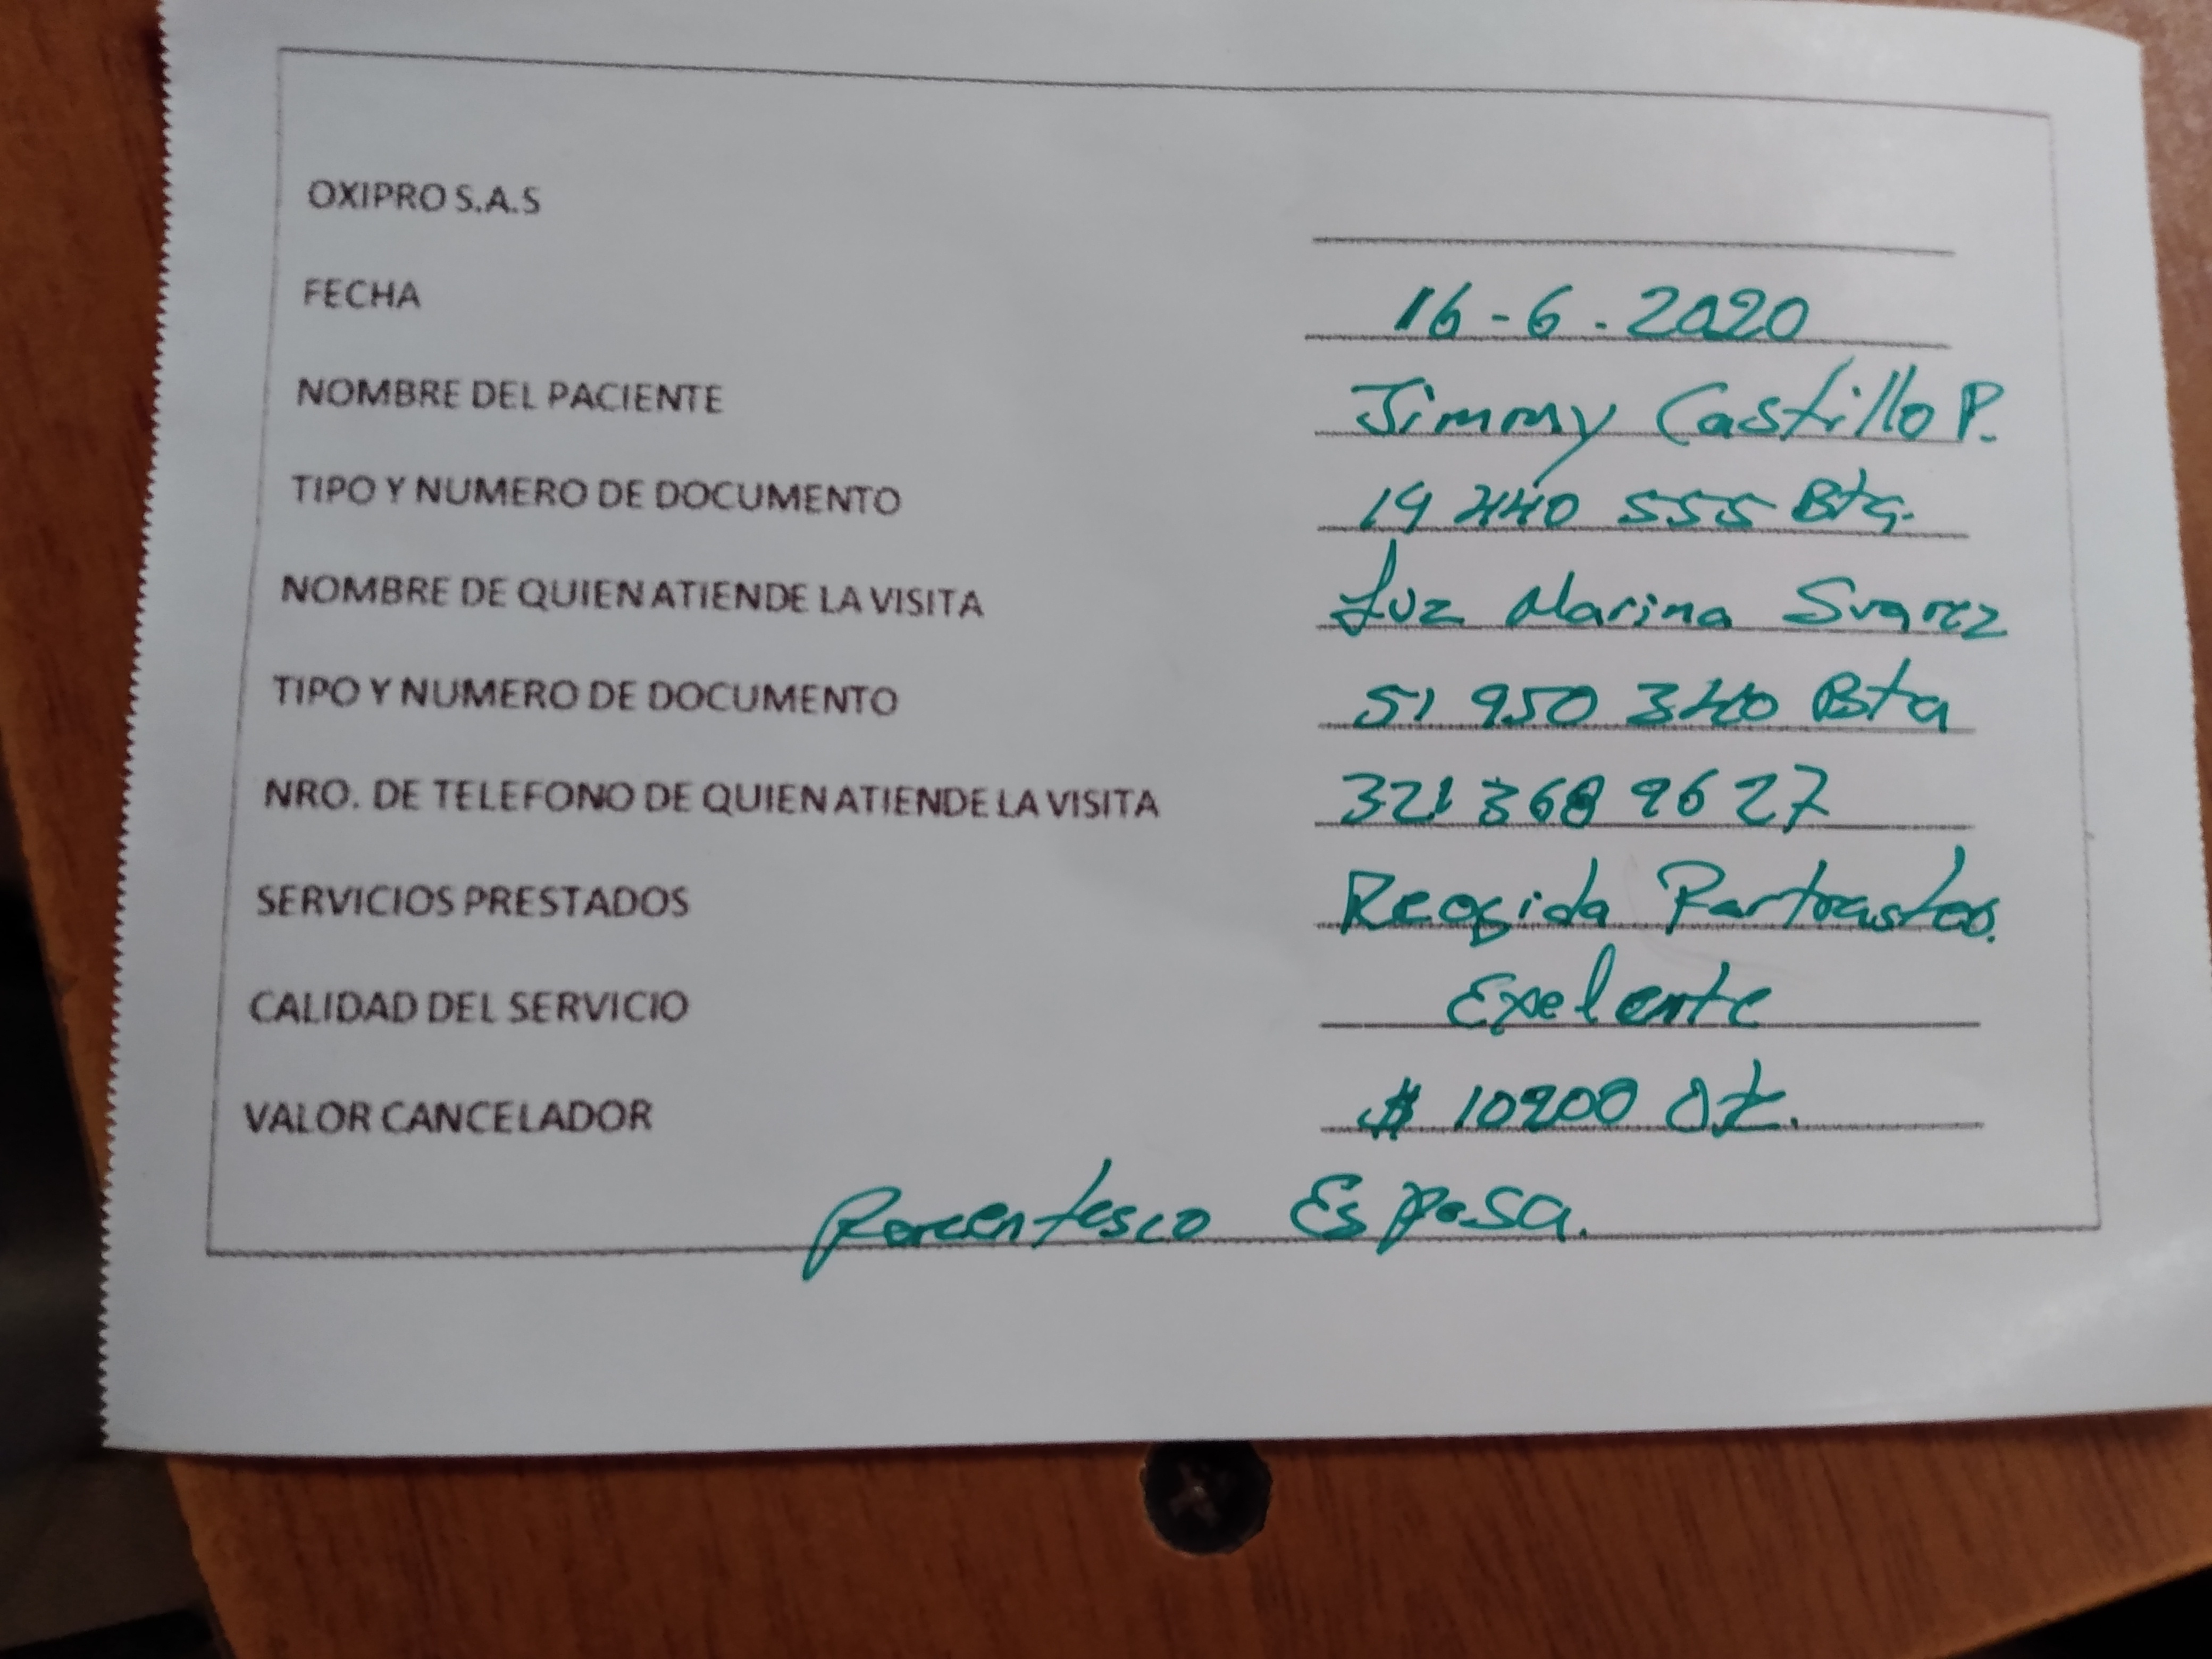 OXIPRO S.A.S
FECHA 16-6-2020
NOMBRE DEL PACIENTE Jimmy Castillo P.
TIPO Y NUMERO DE DOCUMENTO 19 440 555 Bta.
NOMBRE DE QUIEN ATIENDE LA VISITA Luz Marina Suarez
TIPO Y NUMERO DE DOCUMENTO 51 950 340 Bta
NRO. DE TELEFONO DE QUIEN ATIENDE LA VISITA 321 368 9627
SERVICIOS PRESTADOS
CALIDAD DEL SERVICIO Exelente
VALOR CANCELADOR $ 10200
Parentesco Esposa.